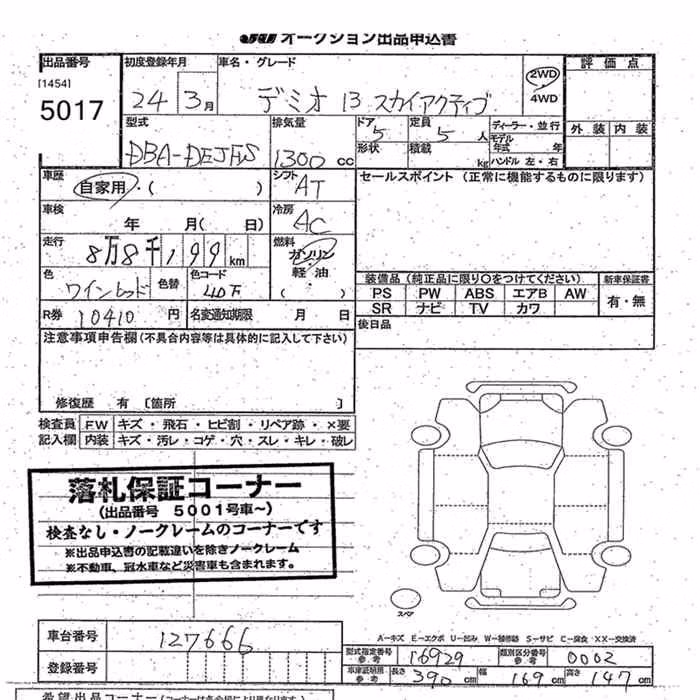 オークション出品申込書
出品番号 初度登録年月 車名・グレード 評価点
[1454]
5017
24 3月 デミオ 13 スカイアクティブ 2WD
4WD
型式 排気量 ドア 定員 ディーラー・並行 外装 内装
DBA-DEJFS 1300cc 5 5人 モデル年式 年
形状 積載 kg ハンドル 左・右
車歴 シフト セールスポイント (正常に機能するものに限ります)
自家用・( ) AT
車検 冷房
年 月( 日) AC
走行 燃料
8万8千,199km ガソリン
軽油
( )
色 色替 色コード
ワインレッド
装備品(純正品に限り○をつけてください) 新車保証書
PS PW ABS エアB AW 有・無
SR ナビ TV カワ
R券 10410円 名変通知期限 月 日
後日品
注意事項申告欄(不具合内容等は具体的に記入して下さい)
修復歴 有 〔箇所 〕
検査員 FW キズ・飛石・ヒビ割・リペア跡・×要
記入欄 内装 キズ・汚レ・コゲ・穴・スレ・キレ・破レ
落札保証コーナー
(出品番号 5001号車~)
検査なし・ノークレームのコーナーです
※出品申込書の記載違いを除きノークレーム
※不動車、冠水車など災害車も含まれます。
スペア
A―キズ E―エクボ U―凹み W―補修跡 S―サビ C―腐食 XX―交換済
車台番号 127666
型式指定番号参考 16929 類別区分番号参考 0002
登録番号
車庫証明用参考 長さ 390cm 幅 169cm 高さ 147cm
希望出品コーナー